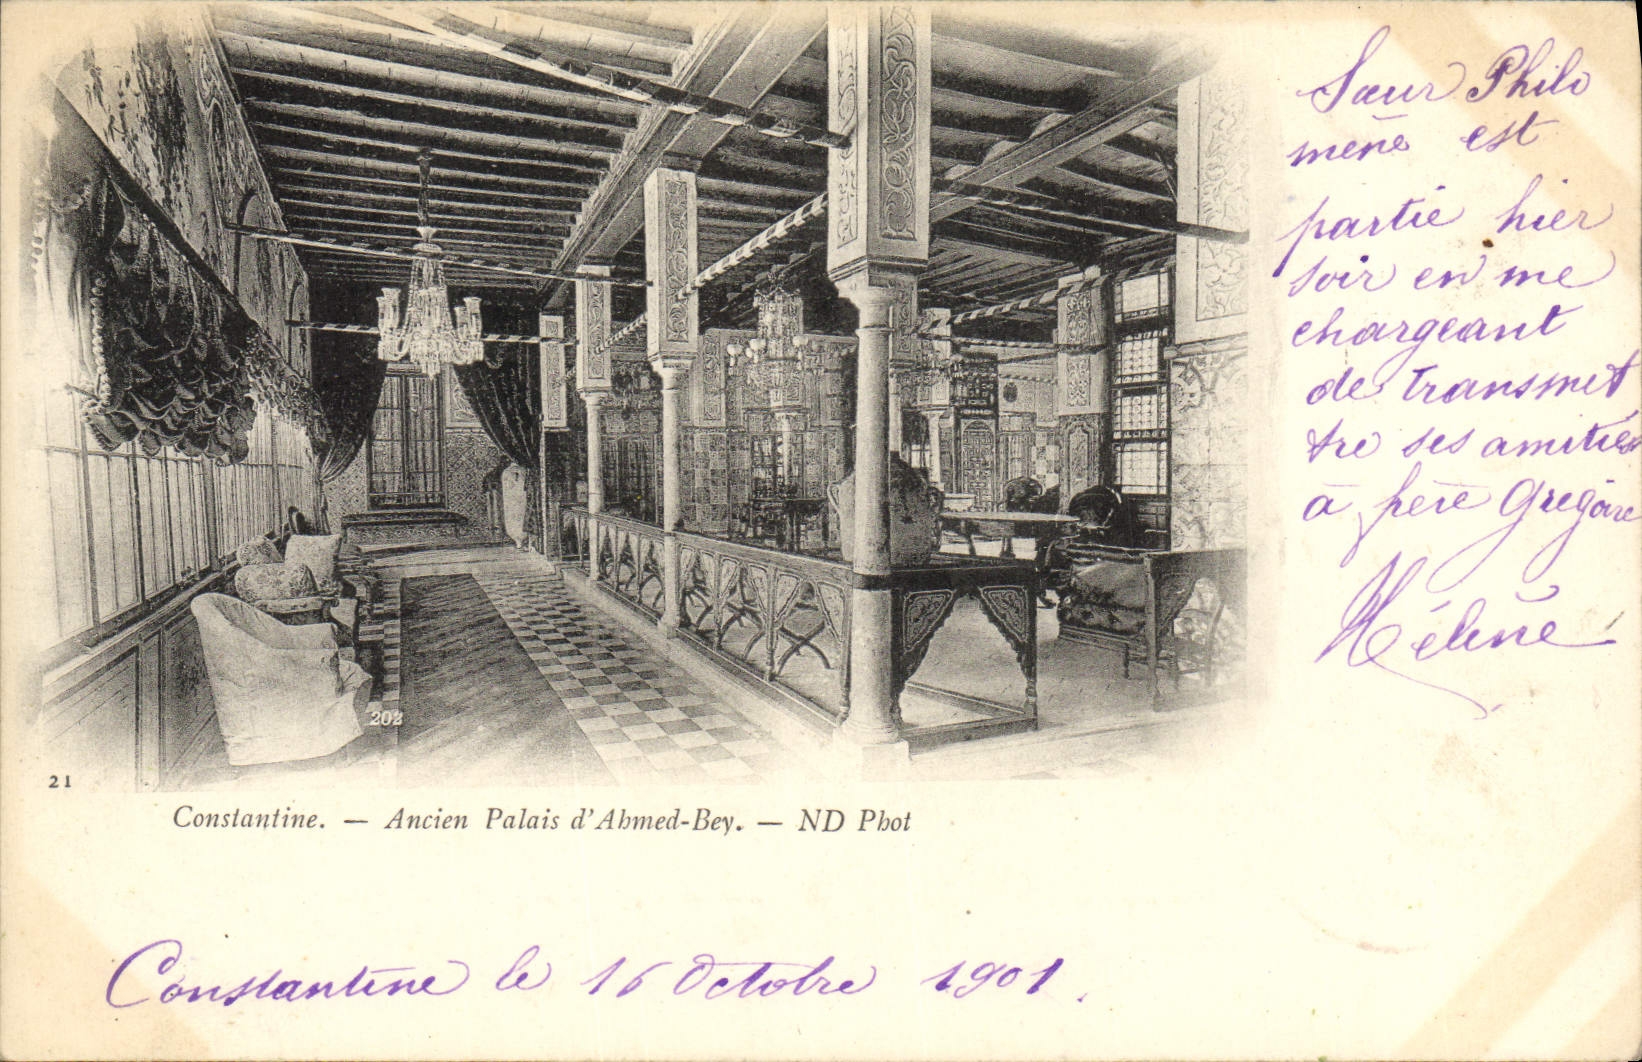 Sœur Philo
mène est
partie hier
soir en me
chargeant
de transmet
tre ses amitiés
à frère Grégoire
Hélène
202
21
Constantine. — Ancien Palais d'Ahmed-Bey. — ND Phot
Constantine le 16 Octobre 1901.